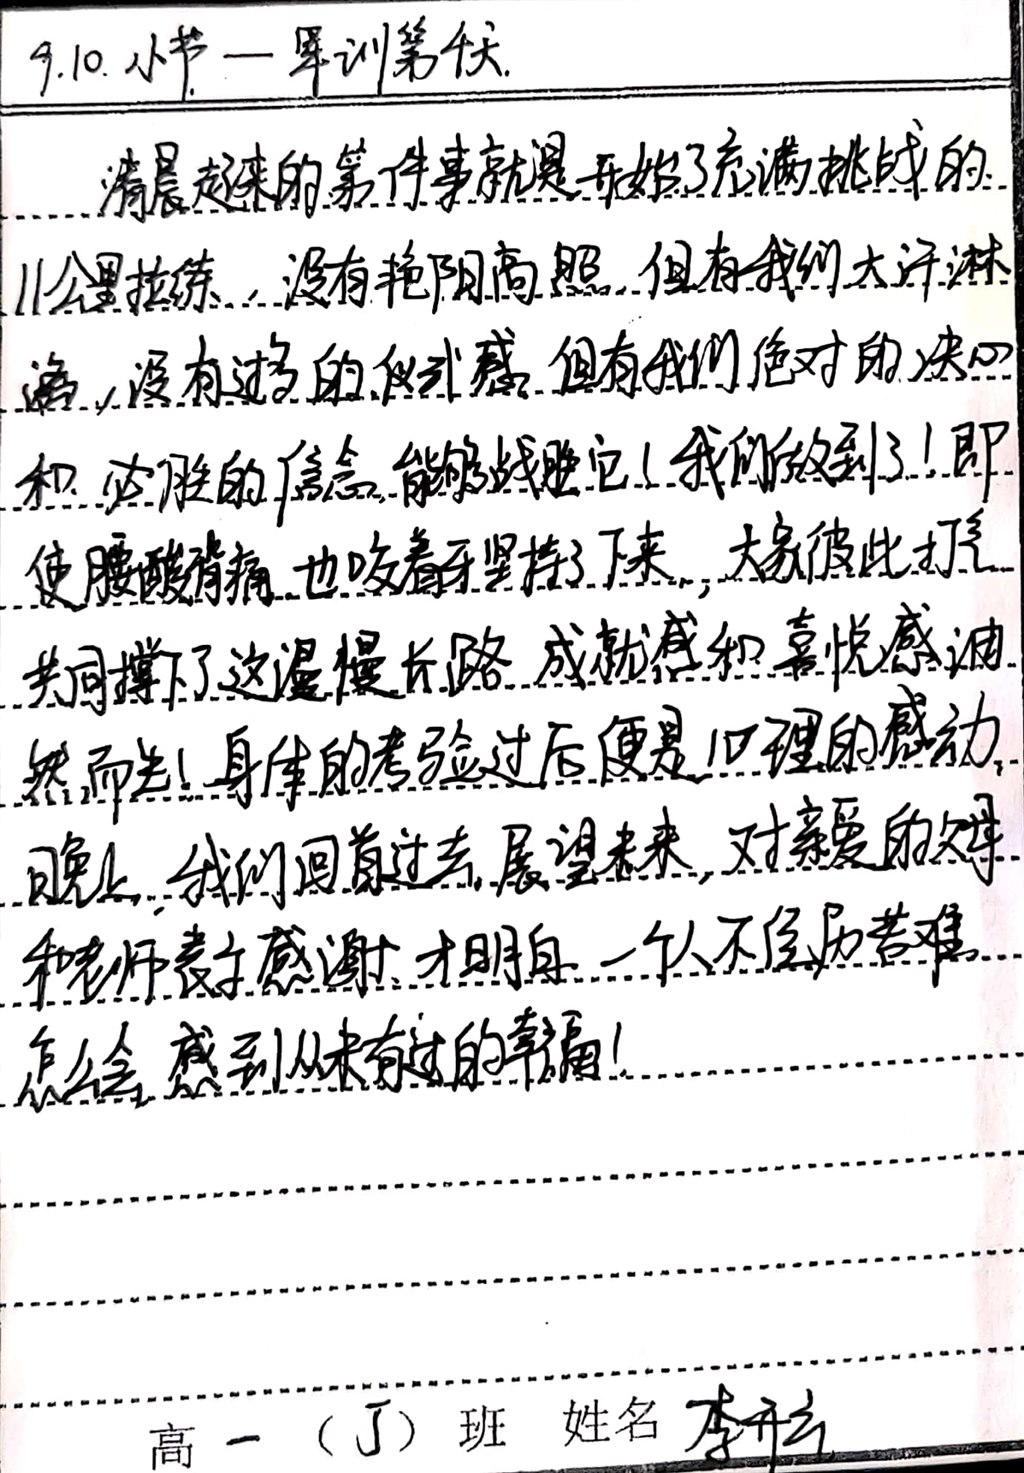 9.10. 小节 — 军训第十天.
清晨起来的第一件事就是开始了充满挑战的
11公里拉练，没有艳阳高照，但有我们大汗淋
漓，没有过多的仪式感，但有我们绝对的决心
和必胜的信念，能够战胜它！我们做到了！即
使腰酸背痛，也咬着牙坚持了下来，大家彼此打气
共同撑下了这漫慢长路，成就感和喜悦感油
然而生！身体的考验过后便是心理的感动，
晚上，我们回首过去，展望未来，对亲爱的父母
和老师表示感谢，才明白，一个人不经历苦难
怎么会感到从未有过的幸福！
高一（J）班 姓名 李开云